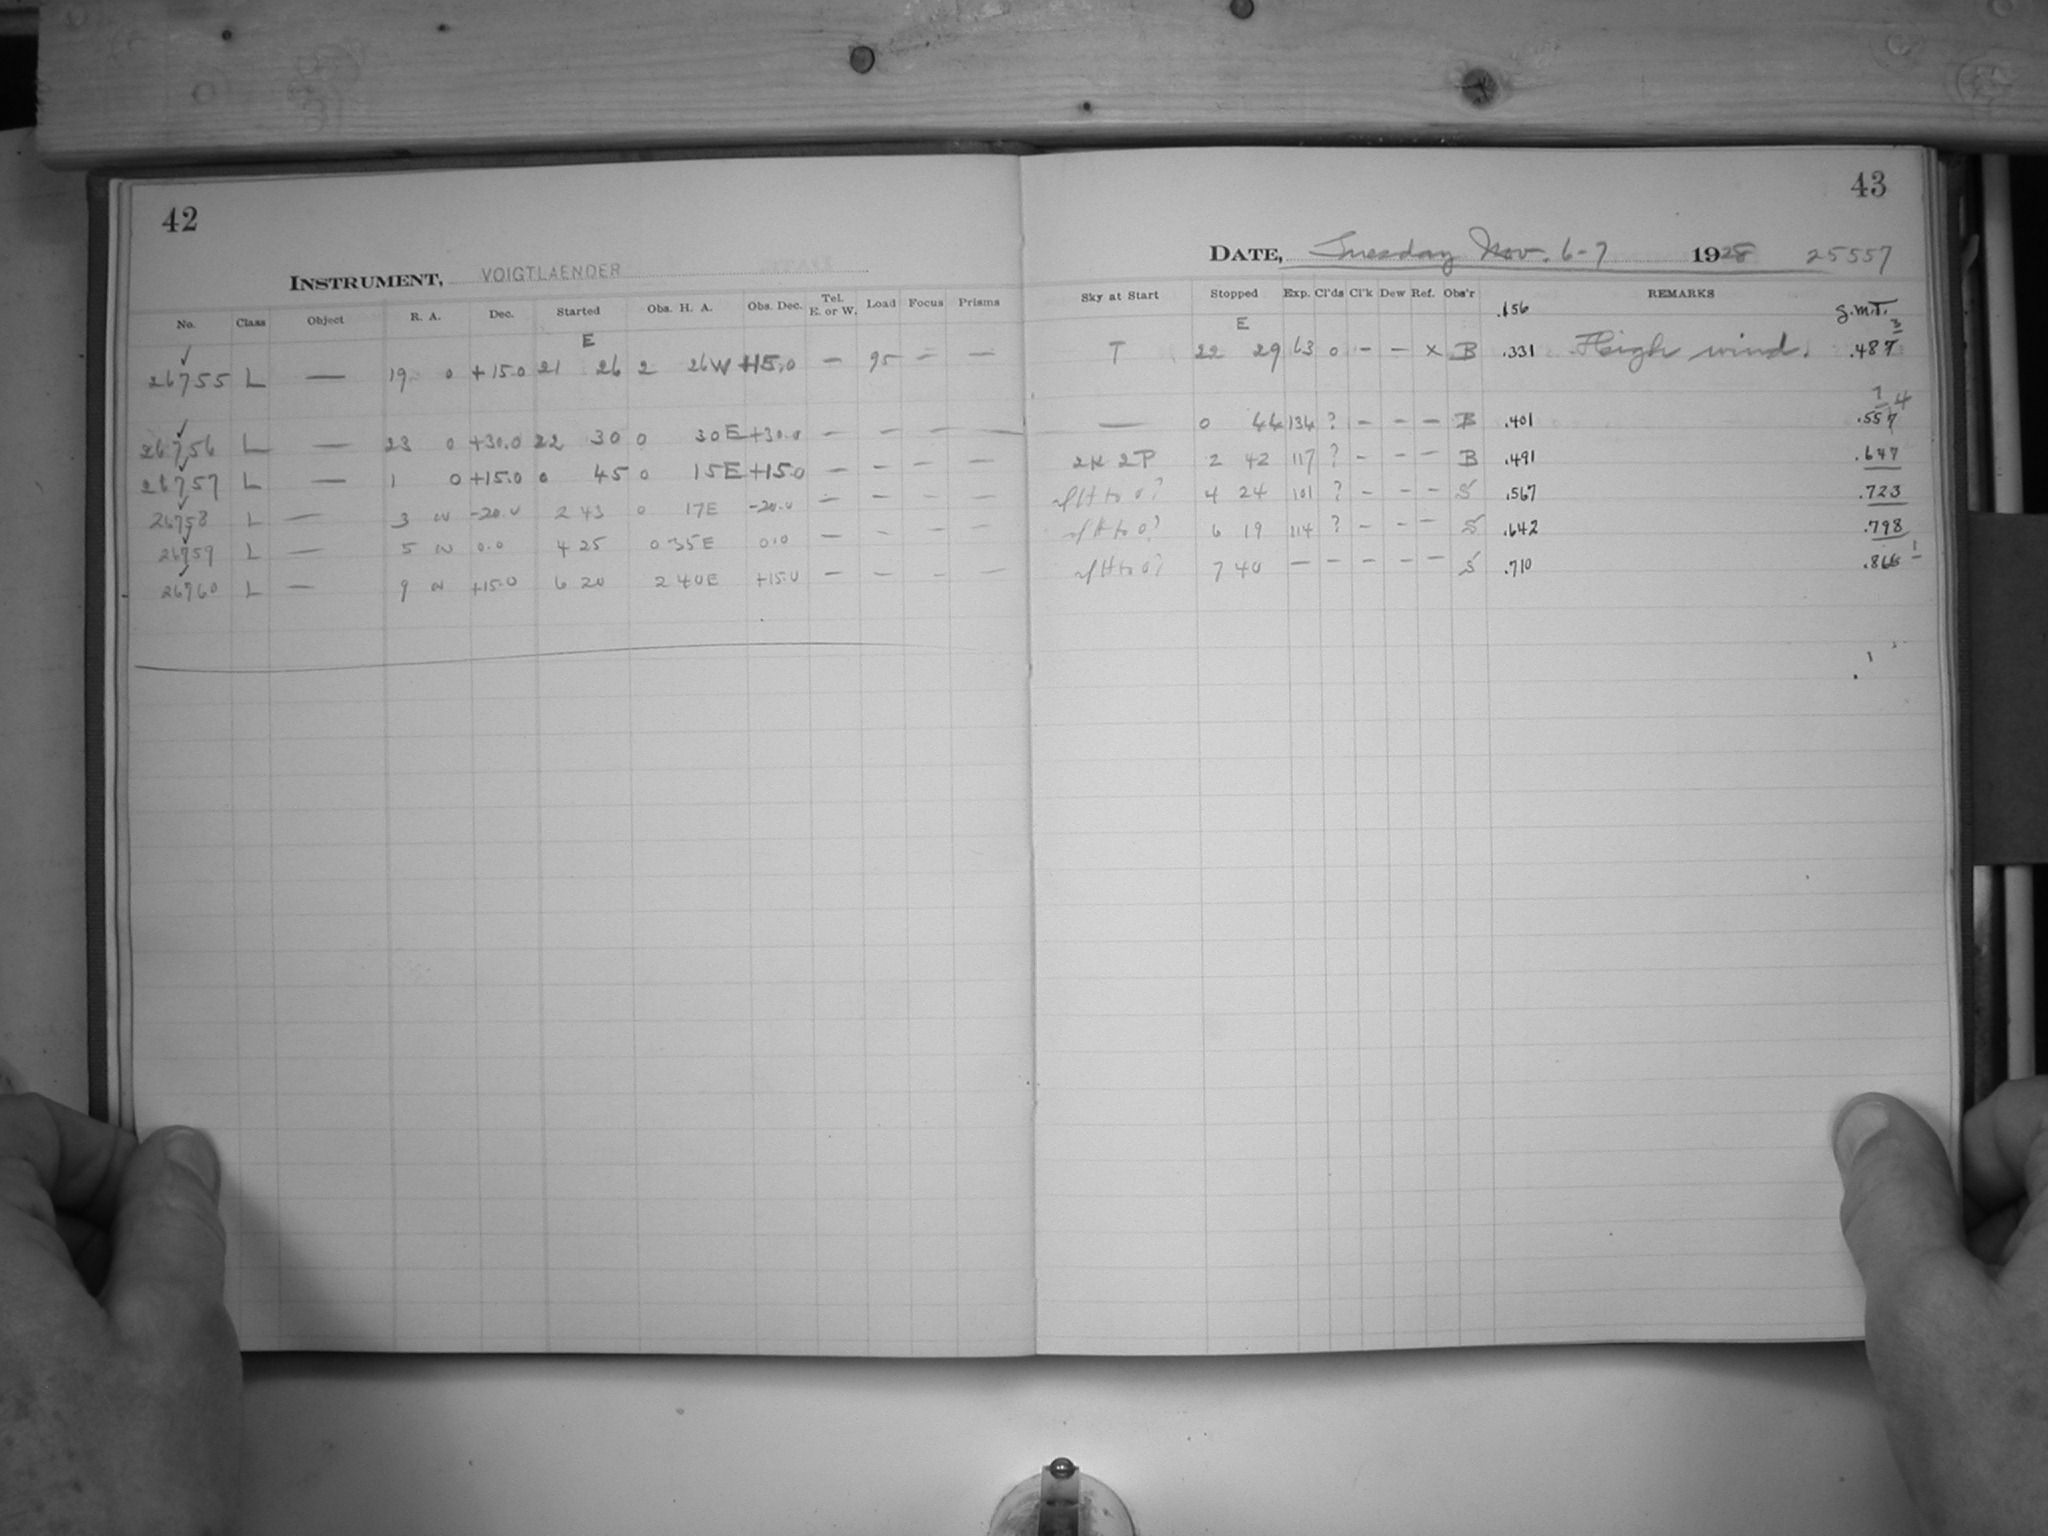 42
INSTRUMENT, VOIGTLAENDER
No. Class Object R. A. Dec. Started Obs. H. A. Obs. Dec. Tel. E. or W. Load Focus Prisms
E
26755 L — 19 0 +15.0 21 26 2 26W +15.0 — 95 — —
26756 L — 23 0 +30.0 22 30 0 30E +30.0 — — — —
26757 L — 1 0 +15.0 0 45 0 15E +15.0 — — — —
26758 L — 3 0 -20.0 2 43 0 17E -20.0 — — — —
26759 L — 5 0 0.0 4 25 0 35E 0.0 — — — —
26760 L — 9 0 +15.0 6 20 2 40E +15.0 — — — —
43
DATE, Tuesday Nov. 6-7 1928 25557
Sky at Start Stopped Exp. Cl'ds Cl'k Dew Ref. Obs'r REMARKS
E .156 G.M.T.
T 22 29 63 0 — — x B .331 High wind. .487 3
— 0 44 134 ? — — — B .401 .557 4
2K 2P 2 42 117 ? — — — B .491 .647
4 24 101 ? — — — S .567 .723
6 19 114 ? — — — S .642 .798
7 40 — — — — — S .710 .866 1